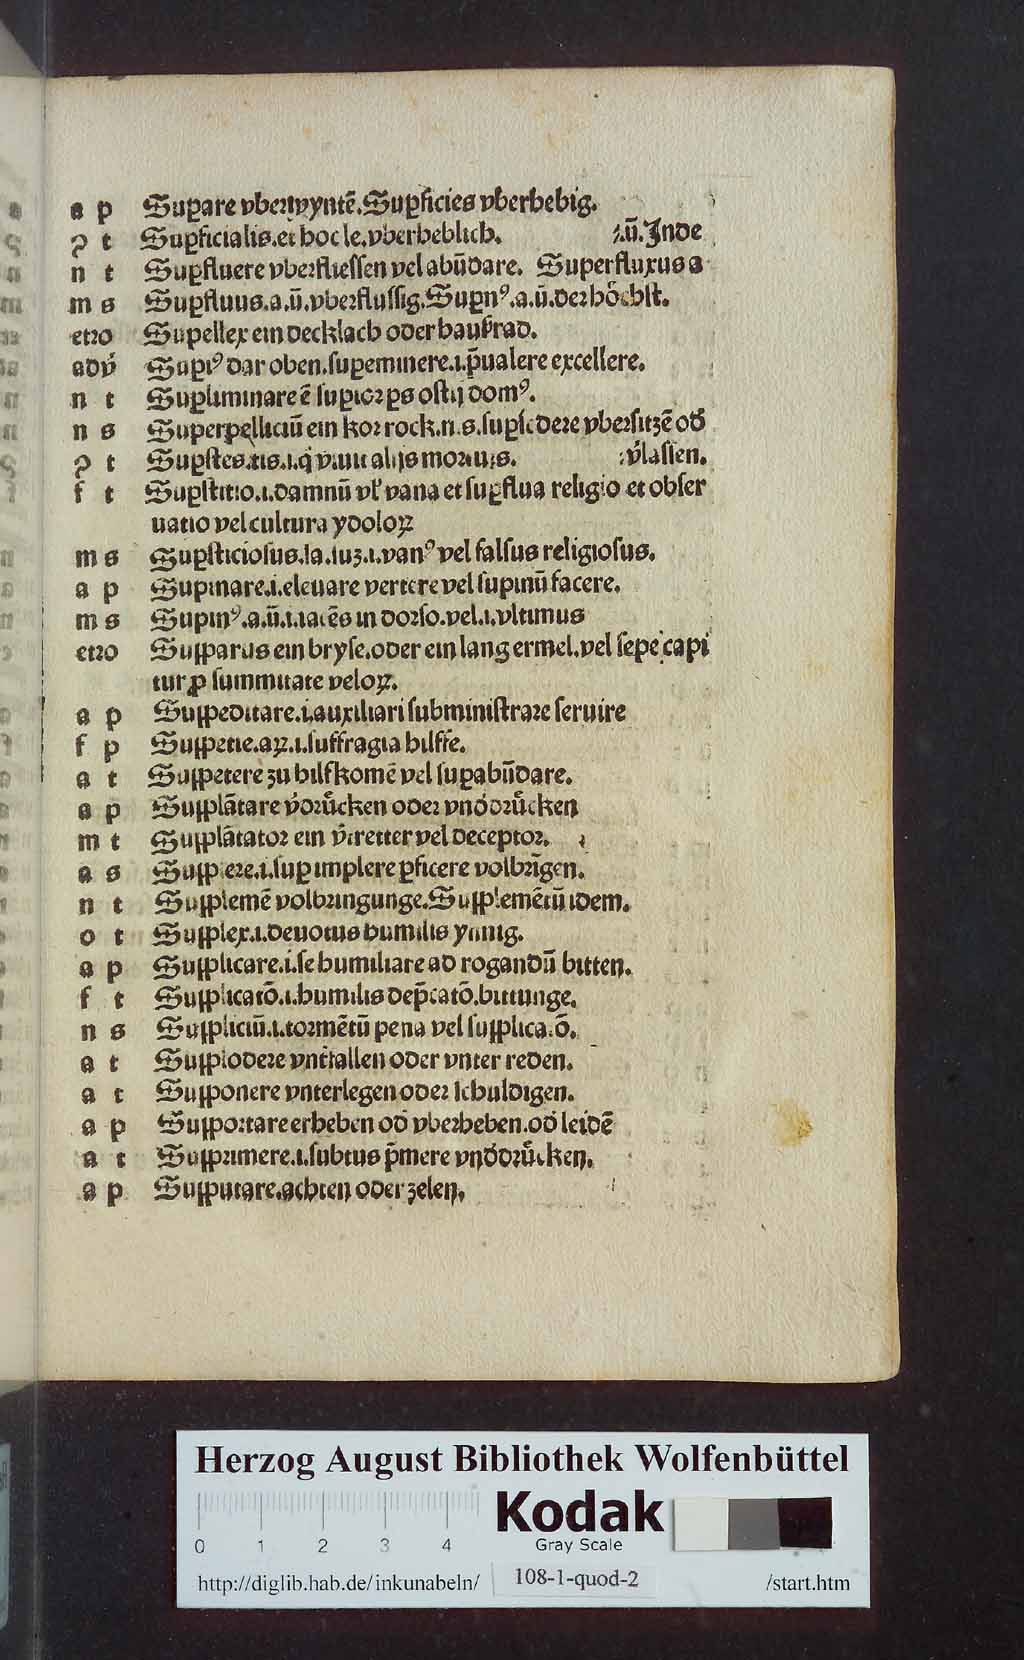 a p Suꝑare vberwyntē. Suꝑficies vberhebig.
ꝯ t Suꝑficialis. et hoc le. vberheblich. .ū. Jnde
n t Suꝑfluere vberfliessen vel abūdare. Superfluxus a
m s Suꝑfluus. a. ū. vberflussig. Suꝑnꝰ. a. ū. der hoͤchst.
etro Supellex ein decklach oder
adv̕ Suꝑiꝰ dar oben. suꝑeminere. i. p̄ualere excellere.
n t Suꝑliminare ē suꝑior ꝑs ostij domꝰ.
n s Superpelliciū ein kor rock. n. s. suꝑsedere vbersitzē od̕
ꝯ t Suꝑstes. tis. i. q̇ viuit alijs mortuis. v̕lassen.
f t Suꝑstitio. i. damnū vel vana et suꝑflua religio et obser
uatio vel cultura ydoloꝝ
m s Suꝑsticiosus. sa. suꝫ. i. vanꝰ vel falsus religiosus.
a p Supinare. i. eleuare vertere vel supinū facere.
m s Supinꝰ. a. ū. i. iacēs in dorso. vel. i. vltimus
etro Supparus ein bryse. oder ein lang ermel. vel sepe capi
tur ꝓ summitate veloꝝ.
a p Suppeditare. i. auxiliari subministrare seruire
f p Suppetie. aꝝ. i. suffragia hilffe.
a t Suppetere zu hilf komē vel suꝑabūdare.
a p Supplātare v̕druͤcken oder vnd̕druͤcken
m t Supplātator ein v̕tretter vel deceptor.
a s Supplere. i. suꝑ implere ꝑficere volbrīgen.
n t Supplemē volbringunge. Supplemētū idem.
o t Supplex. i. deuotus humilis ynnig.
a p Supplicare. i. se humiliare ad rogandū bitten.
f t Supplicatō. i. humilis dep̄catō. bittunge.
n s Suppliciū. i. tormētū pena vel supplicatō.
a t Supplodere vnt̕fallen oder vnter reden.
a t Supponere vnterlegen oder schuldigen.
a p Supportare erheben od̕ vberheben. od̕ leidē
a t Supprimere. i. subtus p̄mere vnd̕druͤcken.
a p Supputare. achten oder zelen.
Herzog August Bibliothek Wolfenbüttel
0 1 2 3 4
Kodak
Gray Scale
http://diglib.hab.de/inkunabeln/ 108-1-quod-2 /start.htm